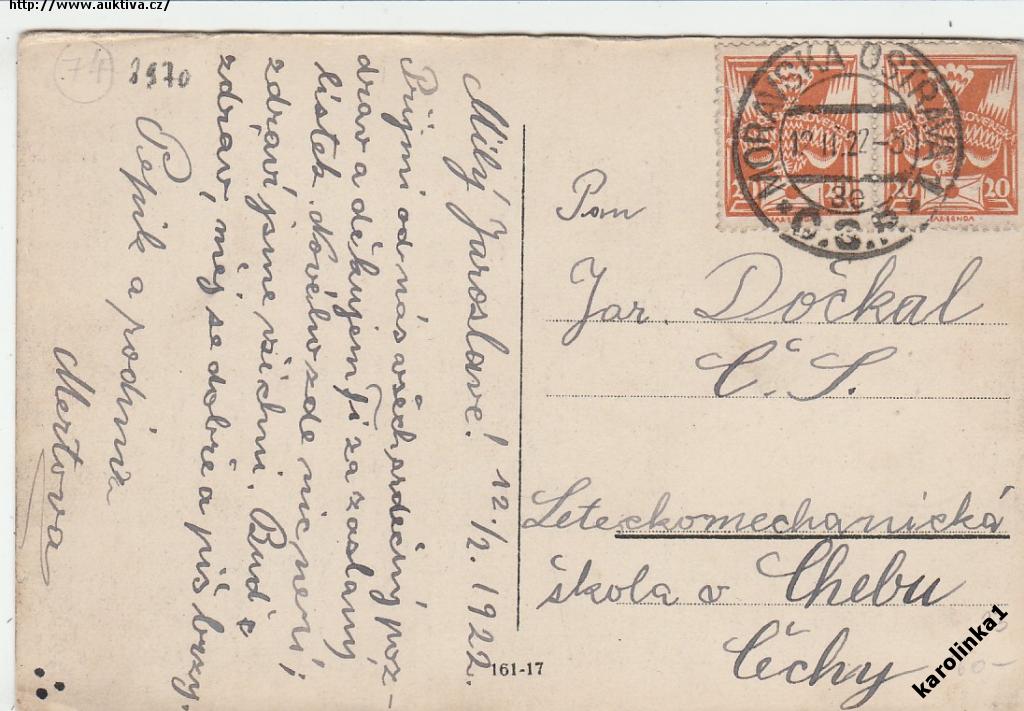 http://www.auktiva.cz/
74
2570
Milý Jaroslave! 12./2. 1922.
Přijmi od nás všech srdečný poz-
drav a děkujem Ti za zaslaný
lístek. Nového zde nic není,
zdraví jsme všichni. Buď
zdráv, měj se dobře a piš brzy.
Pepník a rodina
Mertova
MORAVSKÁ OSTRAVA
12.II.22-
3e
Č.S.P.
20 20
20 20
Pan
Jar. Dočkal
Č. S.
Leteckomechanická
škola v Chebu
Čechy
161-17
karolinka1